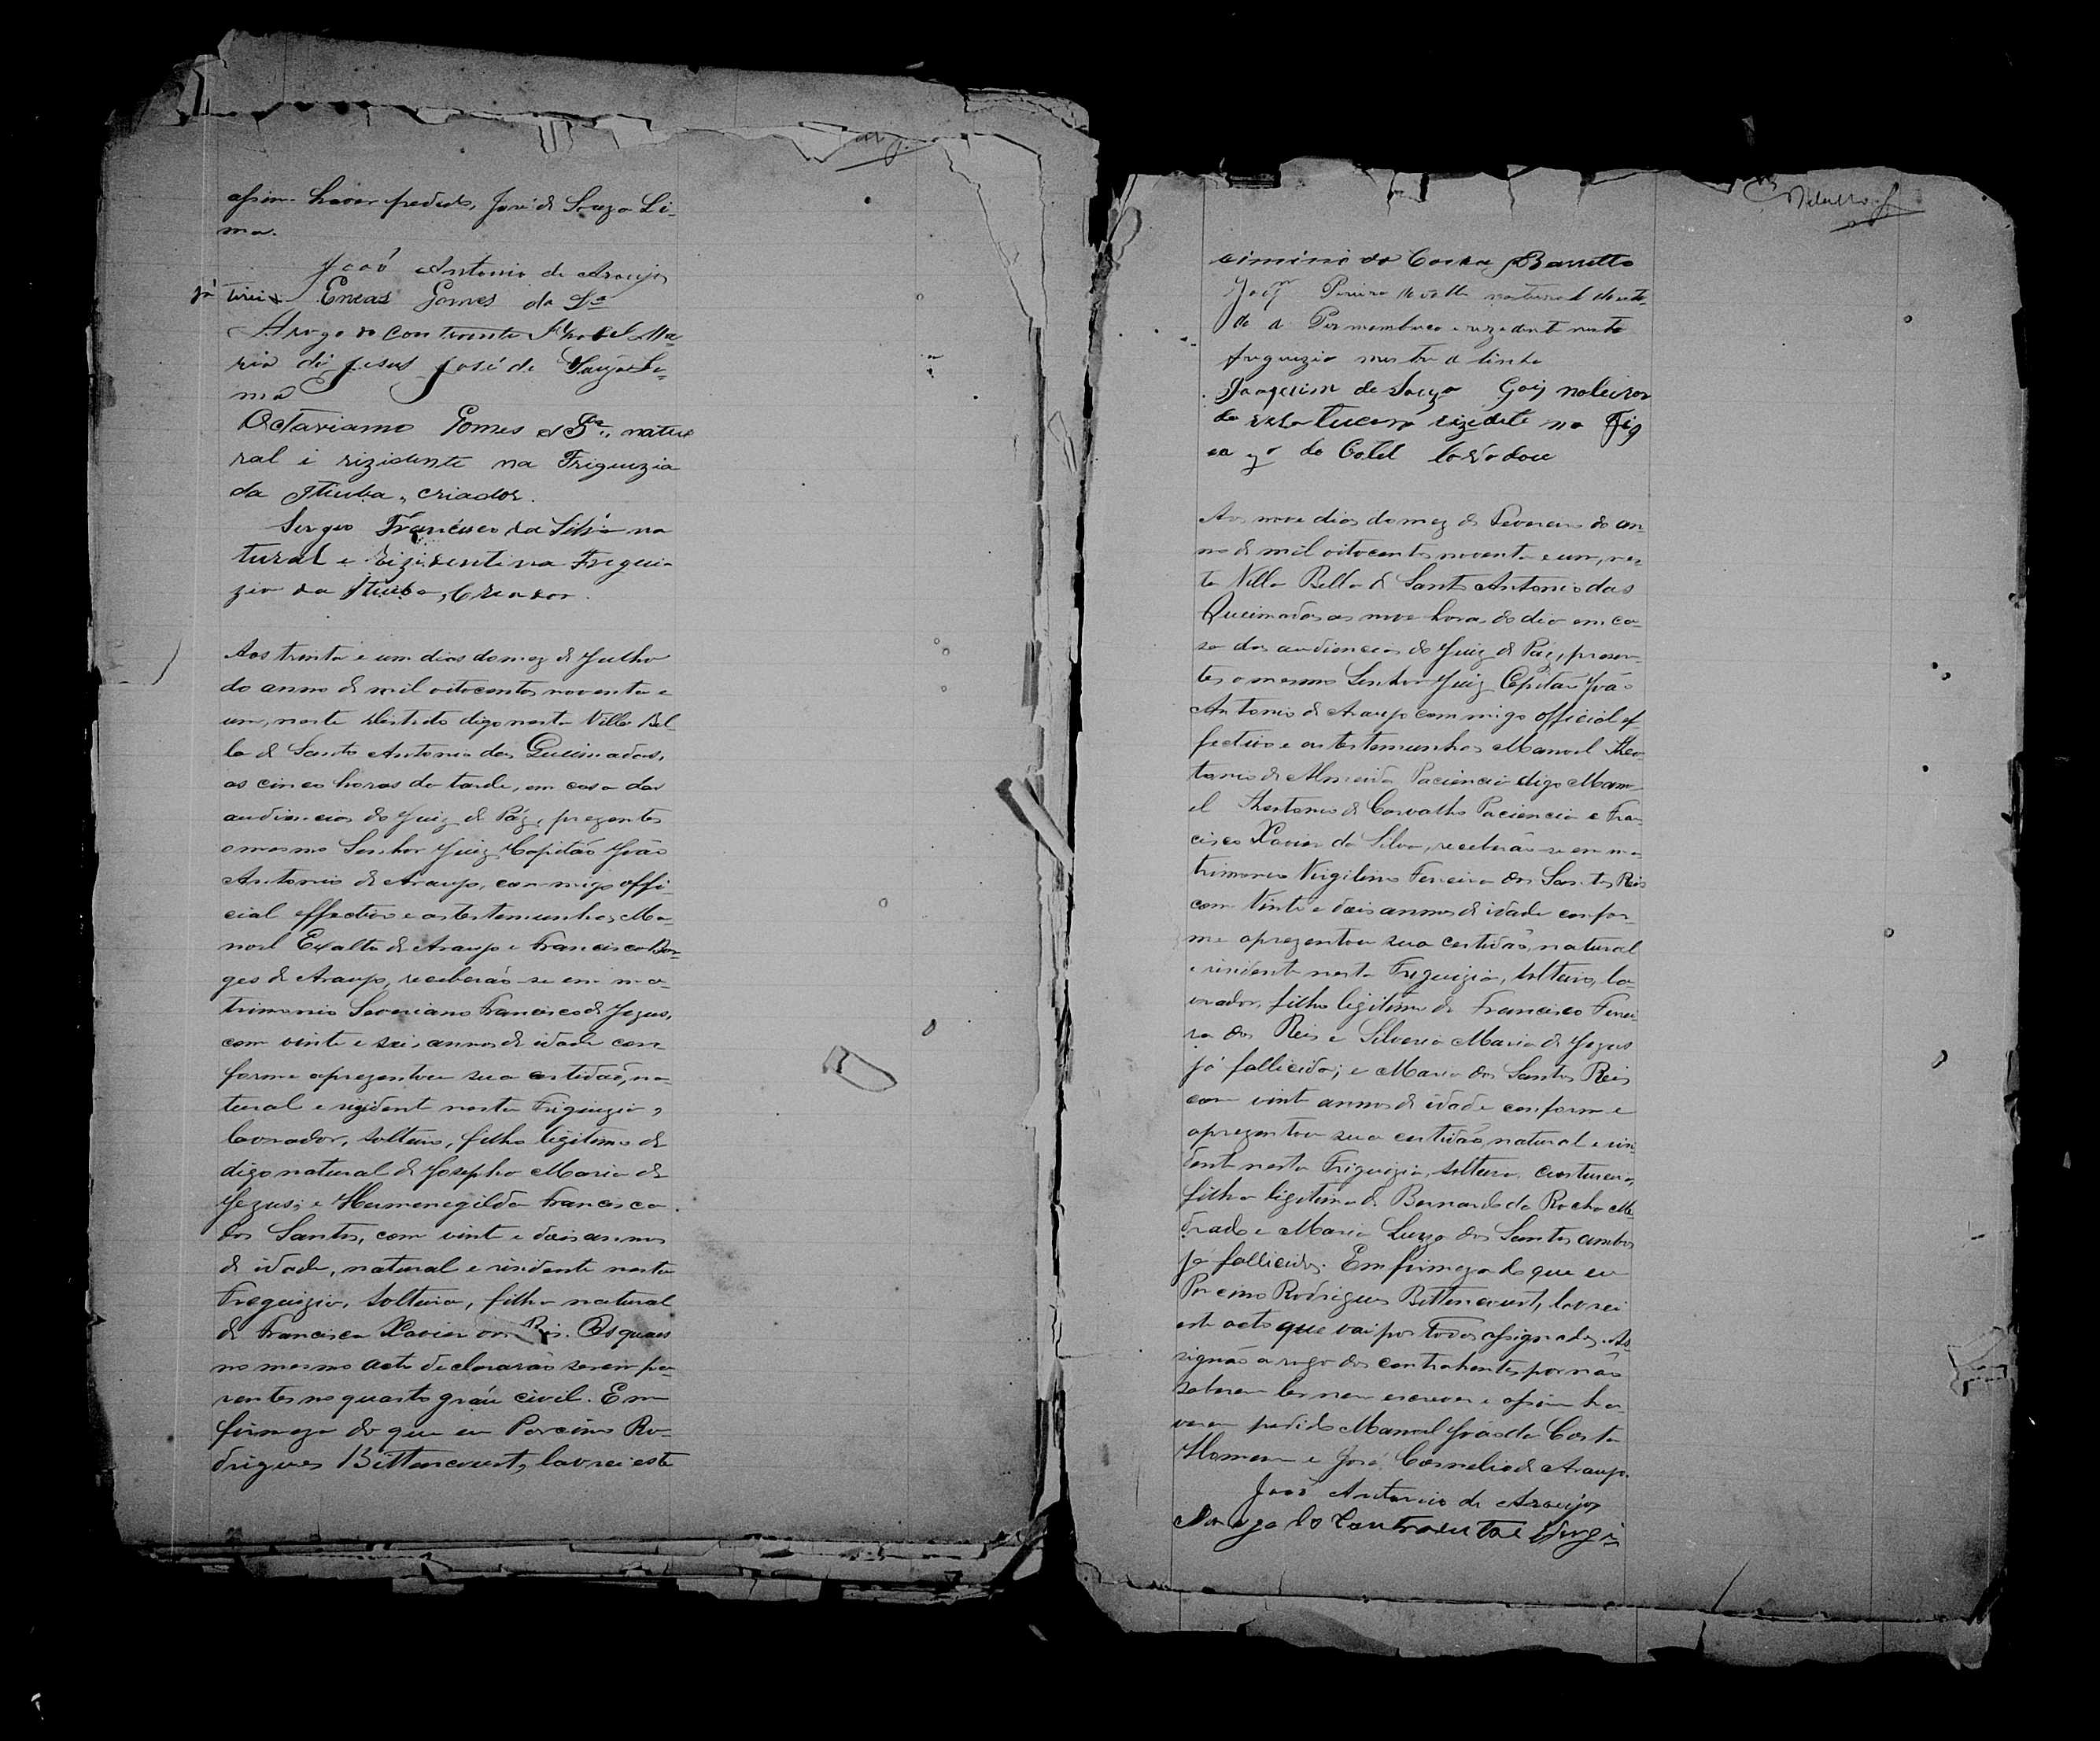 assim haver pedido, José de Souza Li-
ma.
João Antonio de Araujo
já tirei Eneas Gomes da Sª
Arogo do contraente Ma-
ria di Jesus José de Souza Li-
ma
Octaviano Gomes d Sª, natu
ral i rizidente na Friguizia
da Itiuba, criador.
Sergio Francisco da Silva na
tural e rizidenti na Fregui-
zia da Itiuba, Criador.
Aos trinta e um dias do mez de Julho
do anno de mil oitocentos noventa e
um, neste districto digo nesta Villa Bel-
la de Santo Antonio das Queimadas,
as cinco horas da tarde, em casa das
audiencias do Juiz de Páz, prezentes
o mesmo Senhor Juiz Capitão João
Antonio de Araujo, commigo offi-
cial effectivo e as testemunhas Ma-
noel Exalto de Araujo e Francisco Bor-
ges de Araujo, receberão-se em ma-
trimonio Severiano Francisco de Jezus,
com vinte e seis annos de idade con-
forme aprezentou sua certidão, na-
tural e rezident nesta Friguizia,
lavrador, solteiro, filho legitimo de
digo natural de Josepha Maria de
Jezus; e Hermenegilda Francisca
dos Santos, com vinte e dois annos
de idade, natural e residente nesta
Freguizia, solteira, filha natural
de Francisca Xavier dos Reis. Os quaes
no mesmo acto declararão serem pa-
rentes no quarto gráu civil. Em
firmeza do que eu Porcino Ro-
drigues Bittencourt, lavrei este
da Costa Barretto
Joaqm Pereira natural do esta-
do de Pernambuco e rezidente nesta
freguizia mestre de linha
Joaquim de Souza Gois
Aos nove dias do mez de Fevereiro do an-
no de mil oitocentos noventa e um, nes-
ta Villa Bella de Santo Antonio das
Queimadas as nove horas do dia em ca-
sa das audiencias do Juiz de Páz, presen-
tes o mesmo Senhor Juiz Capitão João
Antonio de Araujo commigo official ef
fectivo e as testemunhas Manoel Theo-
tonio de Almeida Paciencia digo Mano-
el Theotonio de Carvalho Paciencia e Fran-
cisco Xavier da Silva, receberão-se em ma-
trimonio Virgilino Ferreira dos Santos Reis
com vinte e dois annos de idade confor-
me aprezentou sua certidão, natural
e residente nesta Freguizia, solteiro, la-
vrador, filho legitimo de Francisco Ferrei-
ra dos Reis e Silveria Maria de Jezus
já fallecida; e Maria dos Santos Reis
com vinte annos de idade conforme
aprezentou sua certidão natural e resi-
dente nesta Friguizia, solteira, costureira,
filha ligitima de Bernardo da Rocha Me-
drado e Maria Luiza dos Santos ambos
já fallecidos. Em firmeza do que eu
Porcino Rodrigues Bittencourt, lavrei
este acto que vai por todos assignados. As-
signão a rogo dos contrahentes por não
saberem ler nem escrever e assim ha-
verem pedido Manoel João da Costa
Homem e José Cornelio de Araujo.
João Antonio de Araujo
Arogo do Contraentae Virgi-